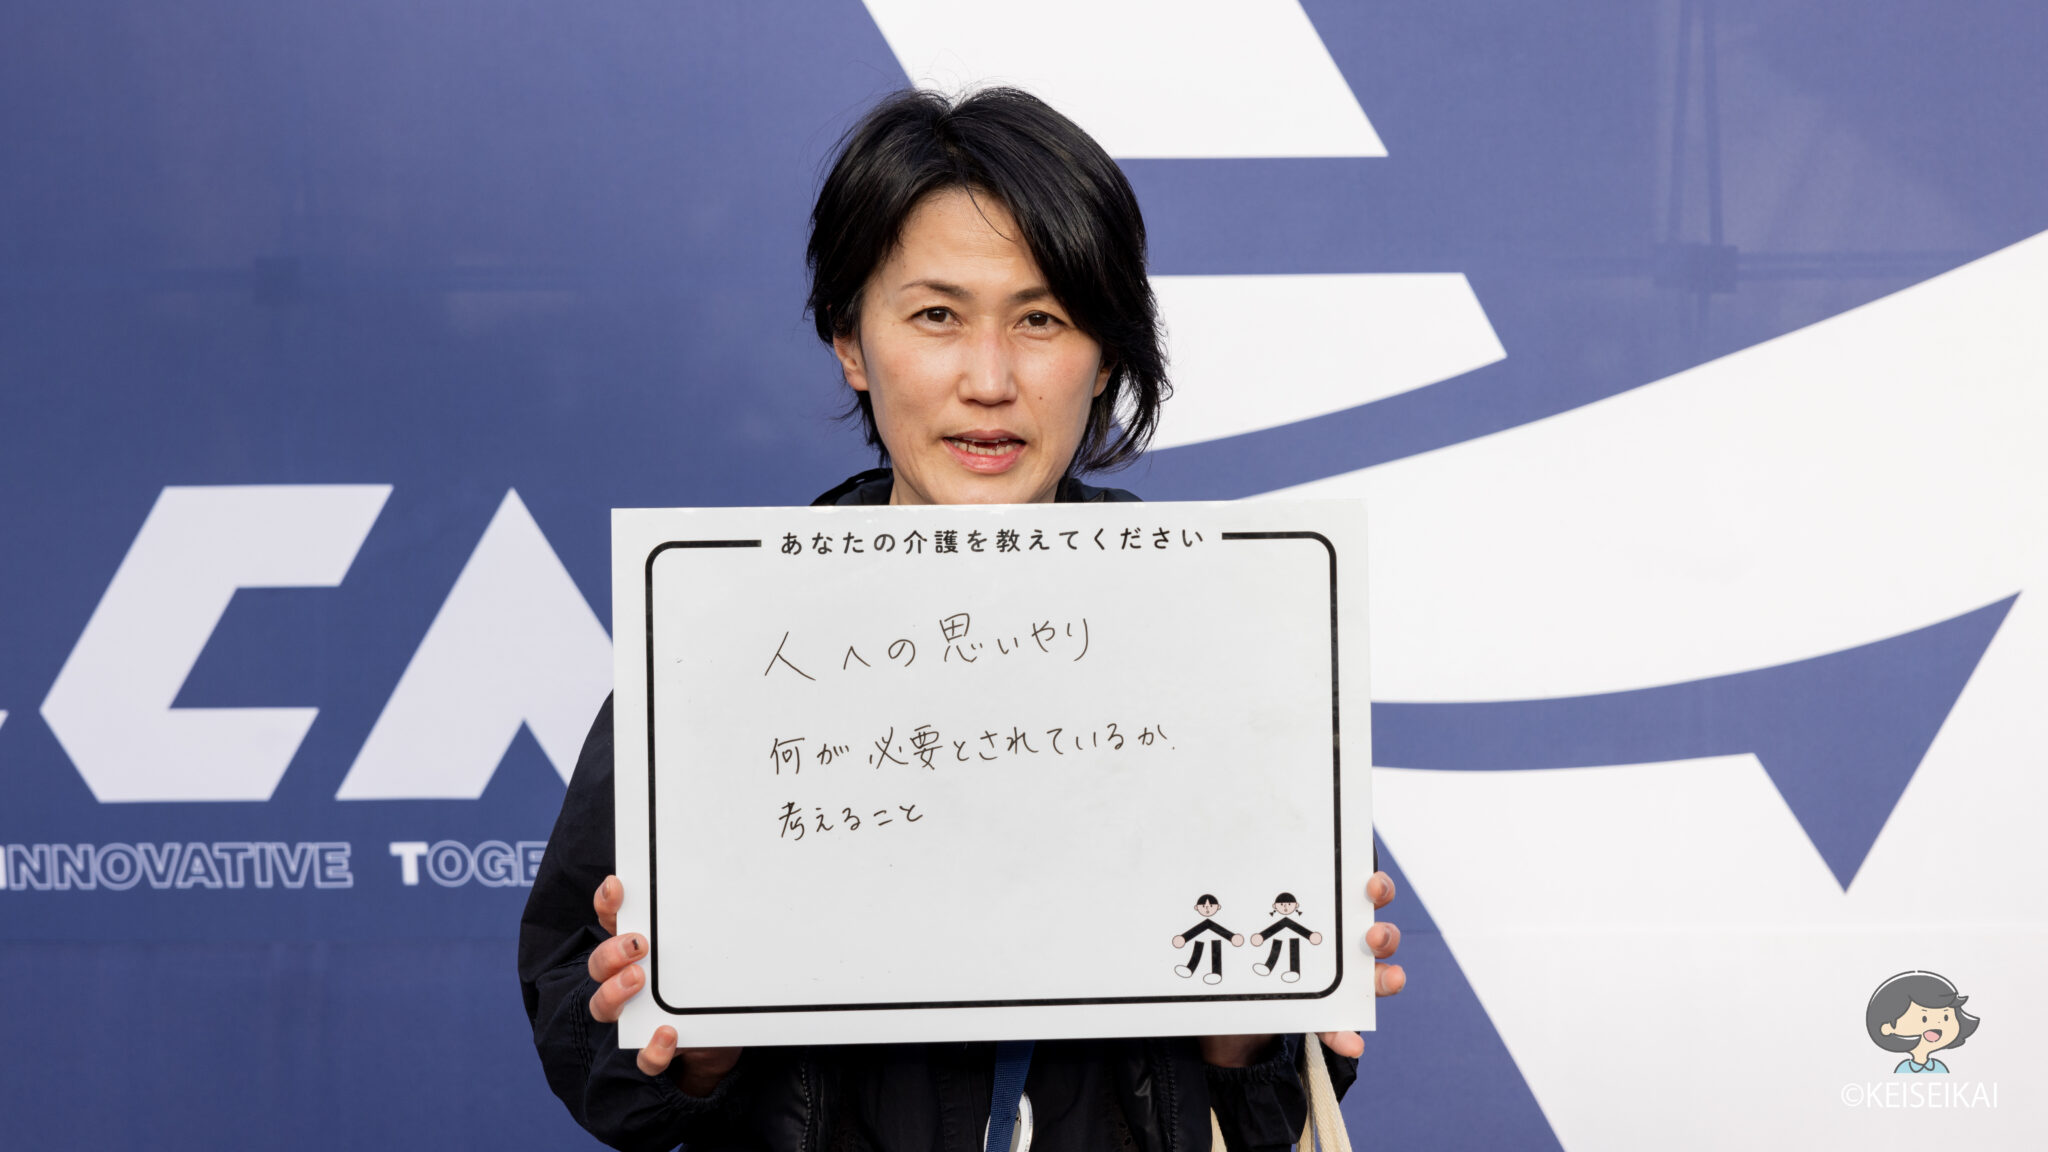 あなたの介護を教えてください
人への思いやり
何が必要とされているか
考えること
INNOVATIVE TOGE
©KEISEIKAI